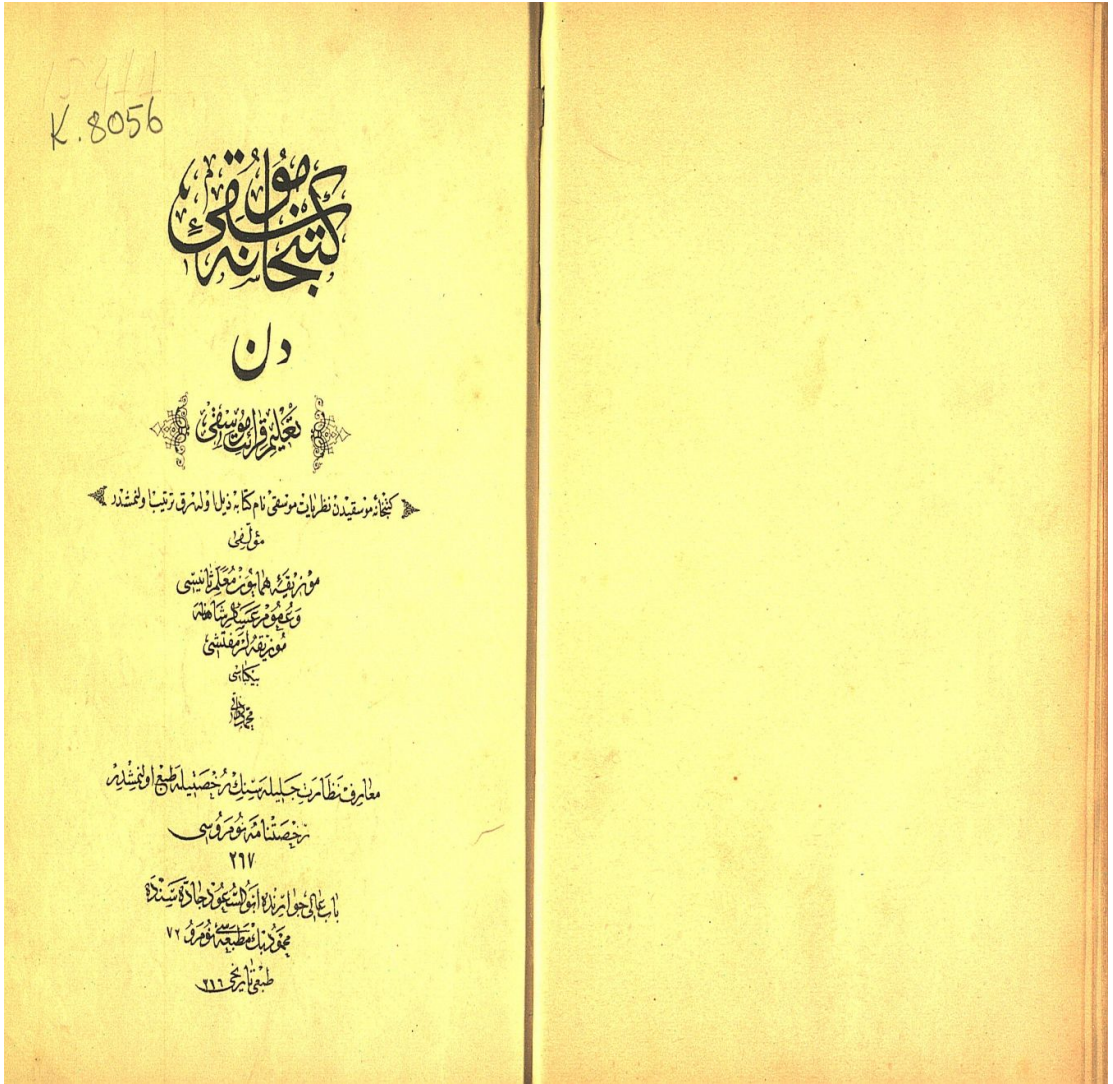 K. 8056
كتبخانه موسقی
دن
تعليم قرائت موسقی
كتبخانهٔ موسقيدن نظريات موسقی نام كتابه ذيل اوله‌رق ترتيب اولنمشدر
مؤلفی
موزيقهٔ همايون معلم ثانيسی
وعموم عساكر شاهانه
موزيقه‌لر مفتشی
بيكباشی
محمد ذاتی
معارف نظارت جليله سنك رخصتيله طبع اولنمشدر
رخصتنامه نومروسی
٢٦٧
باب عالی جوارنده ابوالسعود جاده سنده
محمود بك مطبعه سی نومرو ٧٢
طبعی تاريخی ٣١٦